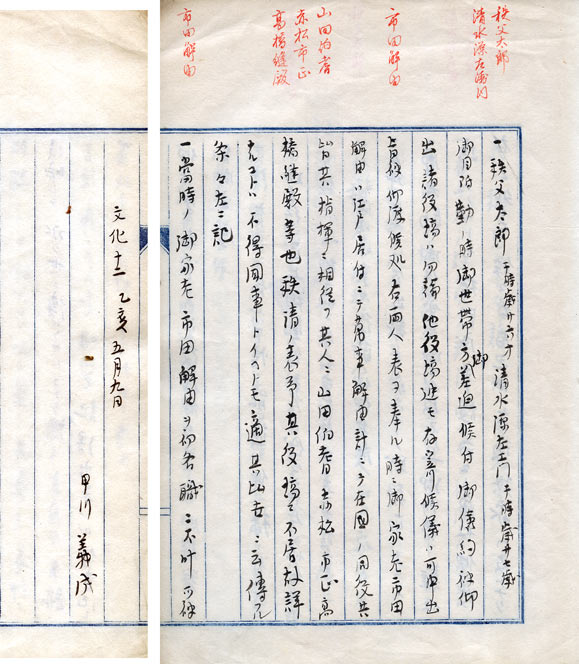 秩父太郎
清水源左衛門
市田解由
山田伯耆
赤松市正
高橋縫殿
市田解由
一秩父太郎 于時歳廿六才 清水源左エ門 于時歳廿七歳
御目附勤ノ時御世帯方差迫候付御倹約被仰
出諸役場ハ勿論他役場迄モ存寄候儀ハ可申出
旨被仰渡候処右両人表ヲ奉ル時ニ御家老市田
解由ハ江戸居付ニテ萬事解由計ニテ在国ノ同役共
皆其指揮ニ相従フ其人ニ山田伯耆赤松市正高
橋縫殿等也秩清ノ表予其役場ニ不居故詳
ナルコトハ不得図事トイヘトモ適其比世ニ云傳フル
条々左ニ記
一當時ノ御家老市田解由ヲ初各職ニ不叶
文化十二乙亥五月九日
甲川義成